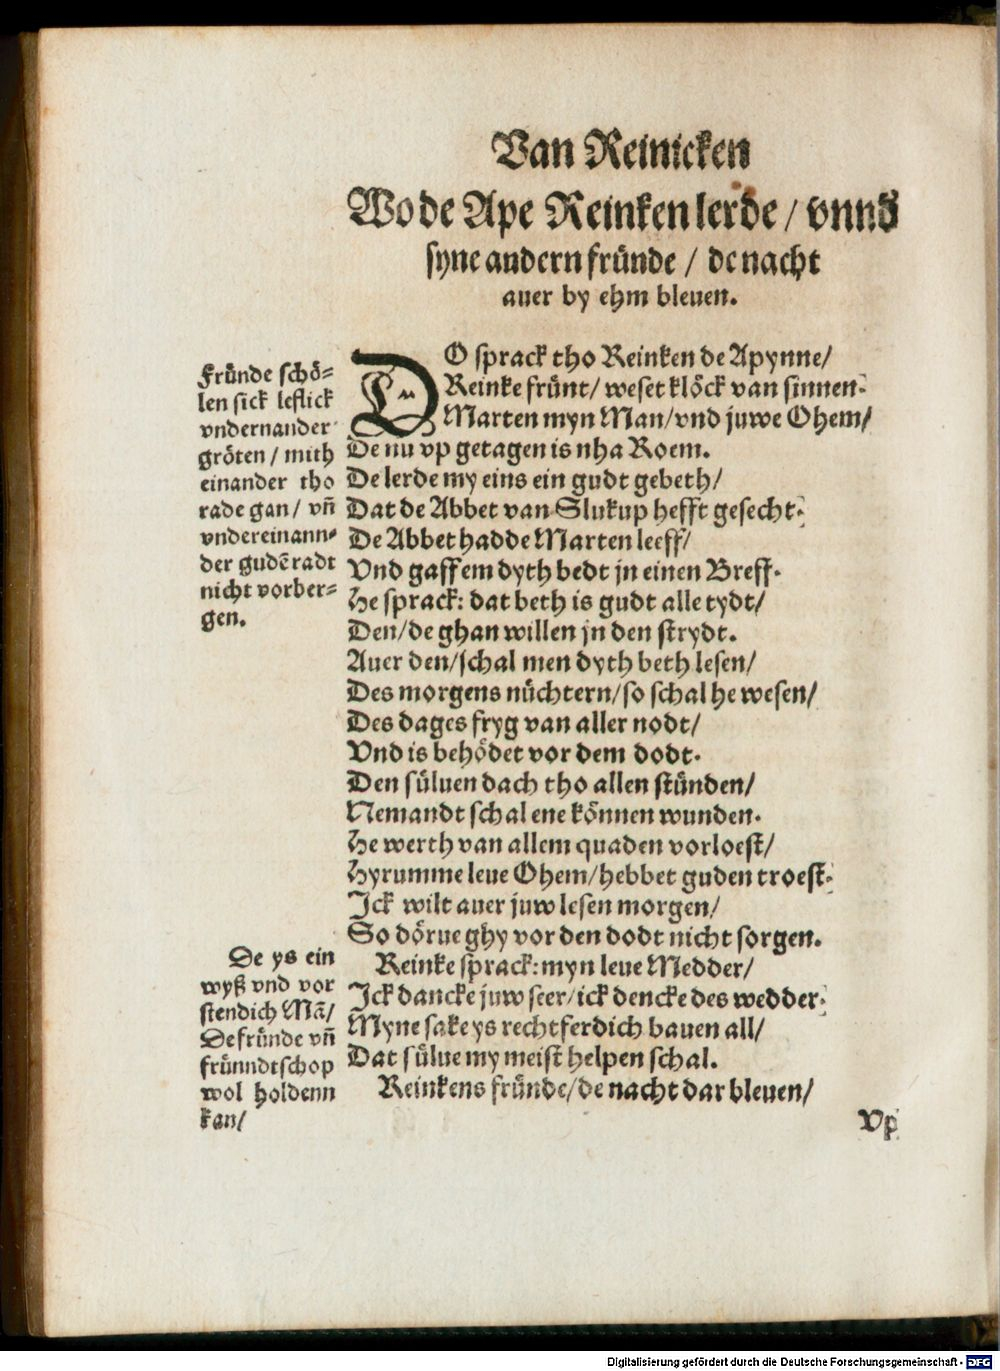 Van Reinicken
Wo de Ape Reinken lerde / vnnd
syne andern fründe / de nacht
auer by ehm bleuen.
Fründe schö-
len sick leflick
vndernander
gröten / mith
einander tho
rade gan / vñ
vndereinann-
der gudē radt
nicht vorber-
gen.
DO sprack tho Reinken de Apynne/
Reinke frünt/ weset klöck van sinnen.
Marten myn Man/ vnd juwe Ohem/
De nu vp getagen is nha Roem.
De lerde my eins ein gudt gebeth/
Dat de Abbet van Slukup hefft gesecht.
De Abbet hadde Marten leeff/
Vnd gaff em dyth bedt jn einen Breff.
He sprack: dat beth is gudt alle tydt/
Den/ de ghan willen jn den strydt.
Auer den/ schal men dyth beth lesen/
Des morgens nüchtern/ so schal he wesen/
Des dages fryg van aller nodt/
Vnd is behödet vor dem dodt.
Den süluen dach tho allen stünden/
Nemandt schal ene können wunden.
He werth van allem quaden vorloest/
Hyrumme leue Ohem/ hebbet guden troest.
Ick wilt auer juw lesen morgen/
So dörue ghy vor den dodt nicht sorgen.
Reinke sprack: myn leue Medder/
Ick dancke juw seer/ ick dencke des wedder.
Myne sake ys rechtferdich bauen all/
Dat sülue my meist helpen schal.
Reinkens fründe/ de nacht dar bleuen/
De ys ein
wyß vnd vor
stendich Mā/
De fründe vñ
frünndtschop
wol holdenn
kan/
Vp
Digitalisierung gefördert durch die Deutsche Forschungsgemeinschaft - DFG